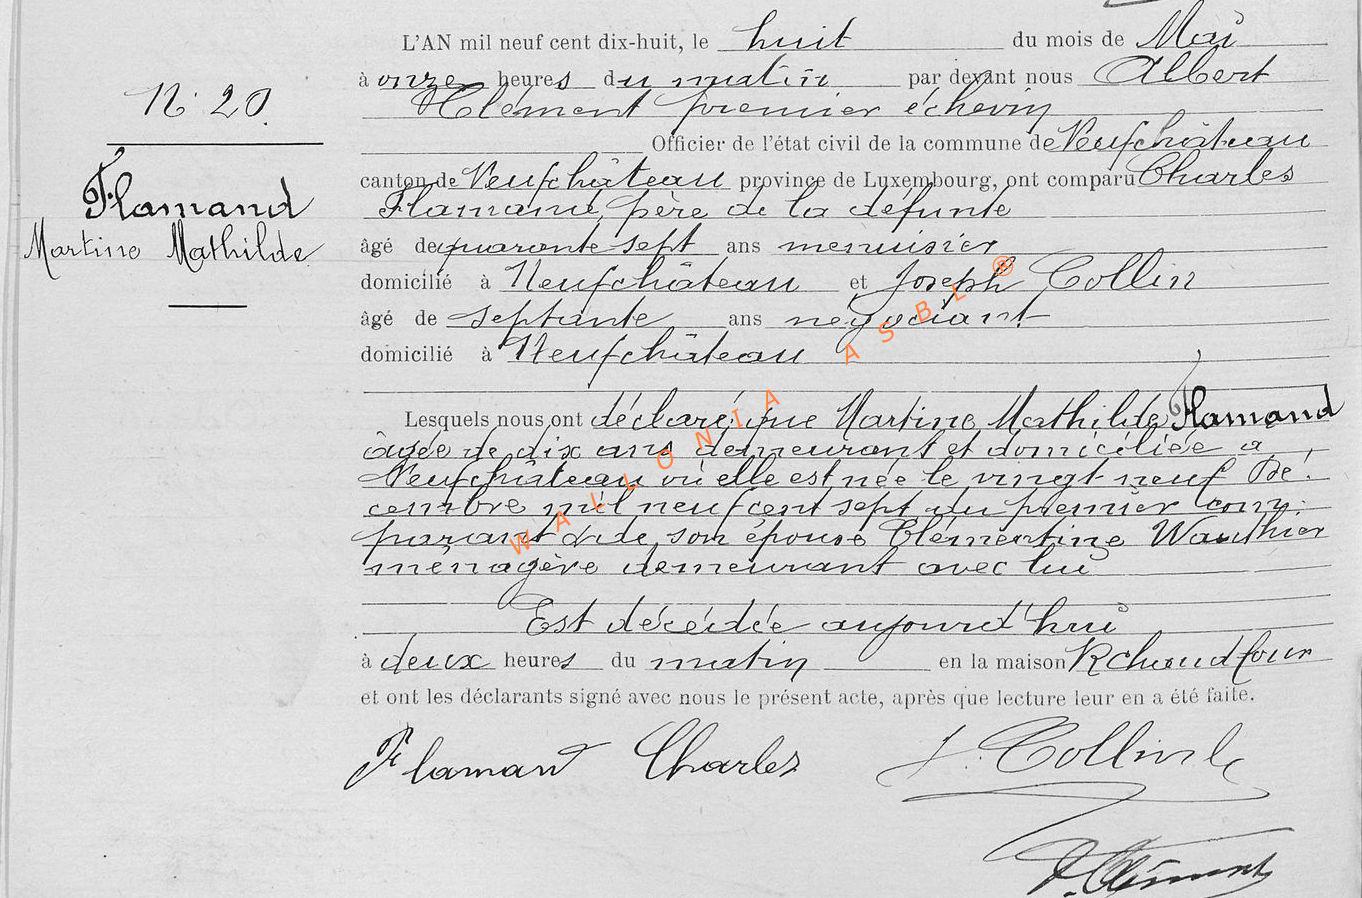 L'AN mil neuf cent dix-huit, le huit du mois de Mai
à onze heures du matin par devant nous Albert
N° 20.
Clément premier échevin
Officier de l'état civil de la commune de Neufchâteau
canton de Neufchâteau province de Luxembourg, ont comparu Charles
Flamand
Flamand, père de la défunte
Martine Mathilde
âgé de quarante sept ans menuisier
domicilié à Neufchâteau et Joseph Collin
âgé de septante ans negociant
domicilié à Neufchâteau
WALLONIA ASBL ®
Lesquels nous ont déclaré que Martine Mathilde Flamand
âgée de dix ans demeurant et domiciliée a
Neufchâteau où elle est née le vingt neuf Dé-
cembre mil neuf cent sept du premier com-
parant & de son épouse Clémentine Wauthier
ménagère demeurant avec lui
Est décédée aujourd'hui
à deux heures du matin en la maison Rchaudfour
et ont les déclarants signé avec nous le présent acte, après que lecture leur en a été faite.
Flamand Charles J. Collin
A. Clément